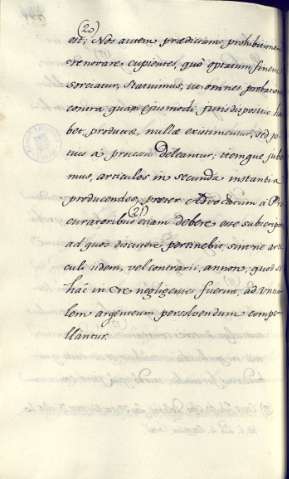 (20)
dit; Nos autem prædictam prohibitionem
renovare cupientes, quò optatum finem
sortiatur, statuimus, ut omnes probationes
contra quas ejusmodi juris dispositio ha-
bet, productæ, nullæ existimentur, sed po-
tius à processu Deleantur; itemque jube-
mus, articulos in secunda instantia
producendos, præter Advocatum à Pro-
curatoribus etiam debere esse subscriptos
(21)
ad quos discutere pertinebit sint ne arti-
culi iidem, vel contrarii, annon, quod si
hac in re negligentes fuerint, ad
argenteum persolvendum compel-
lantur.